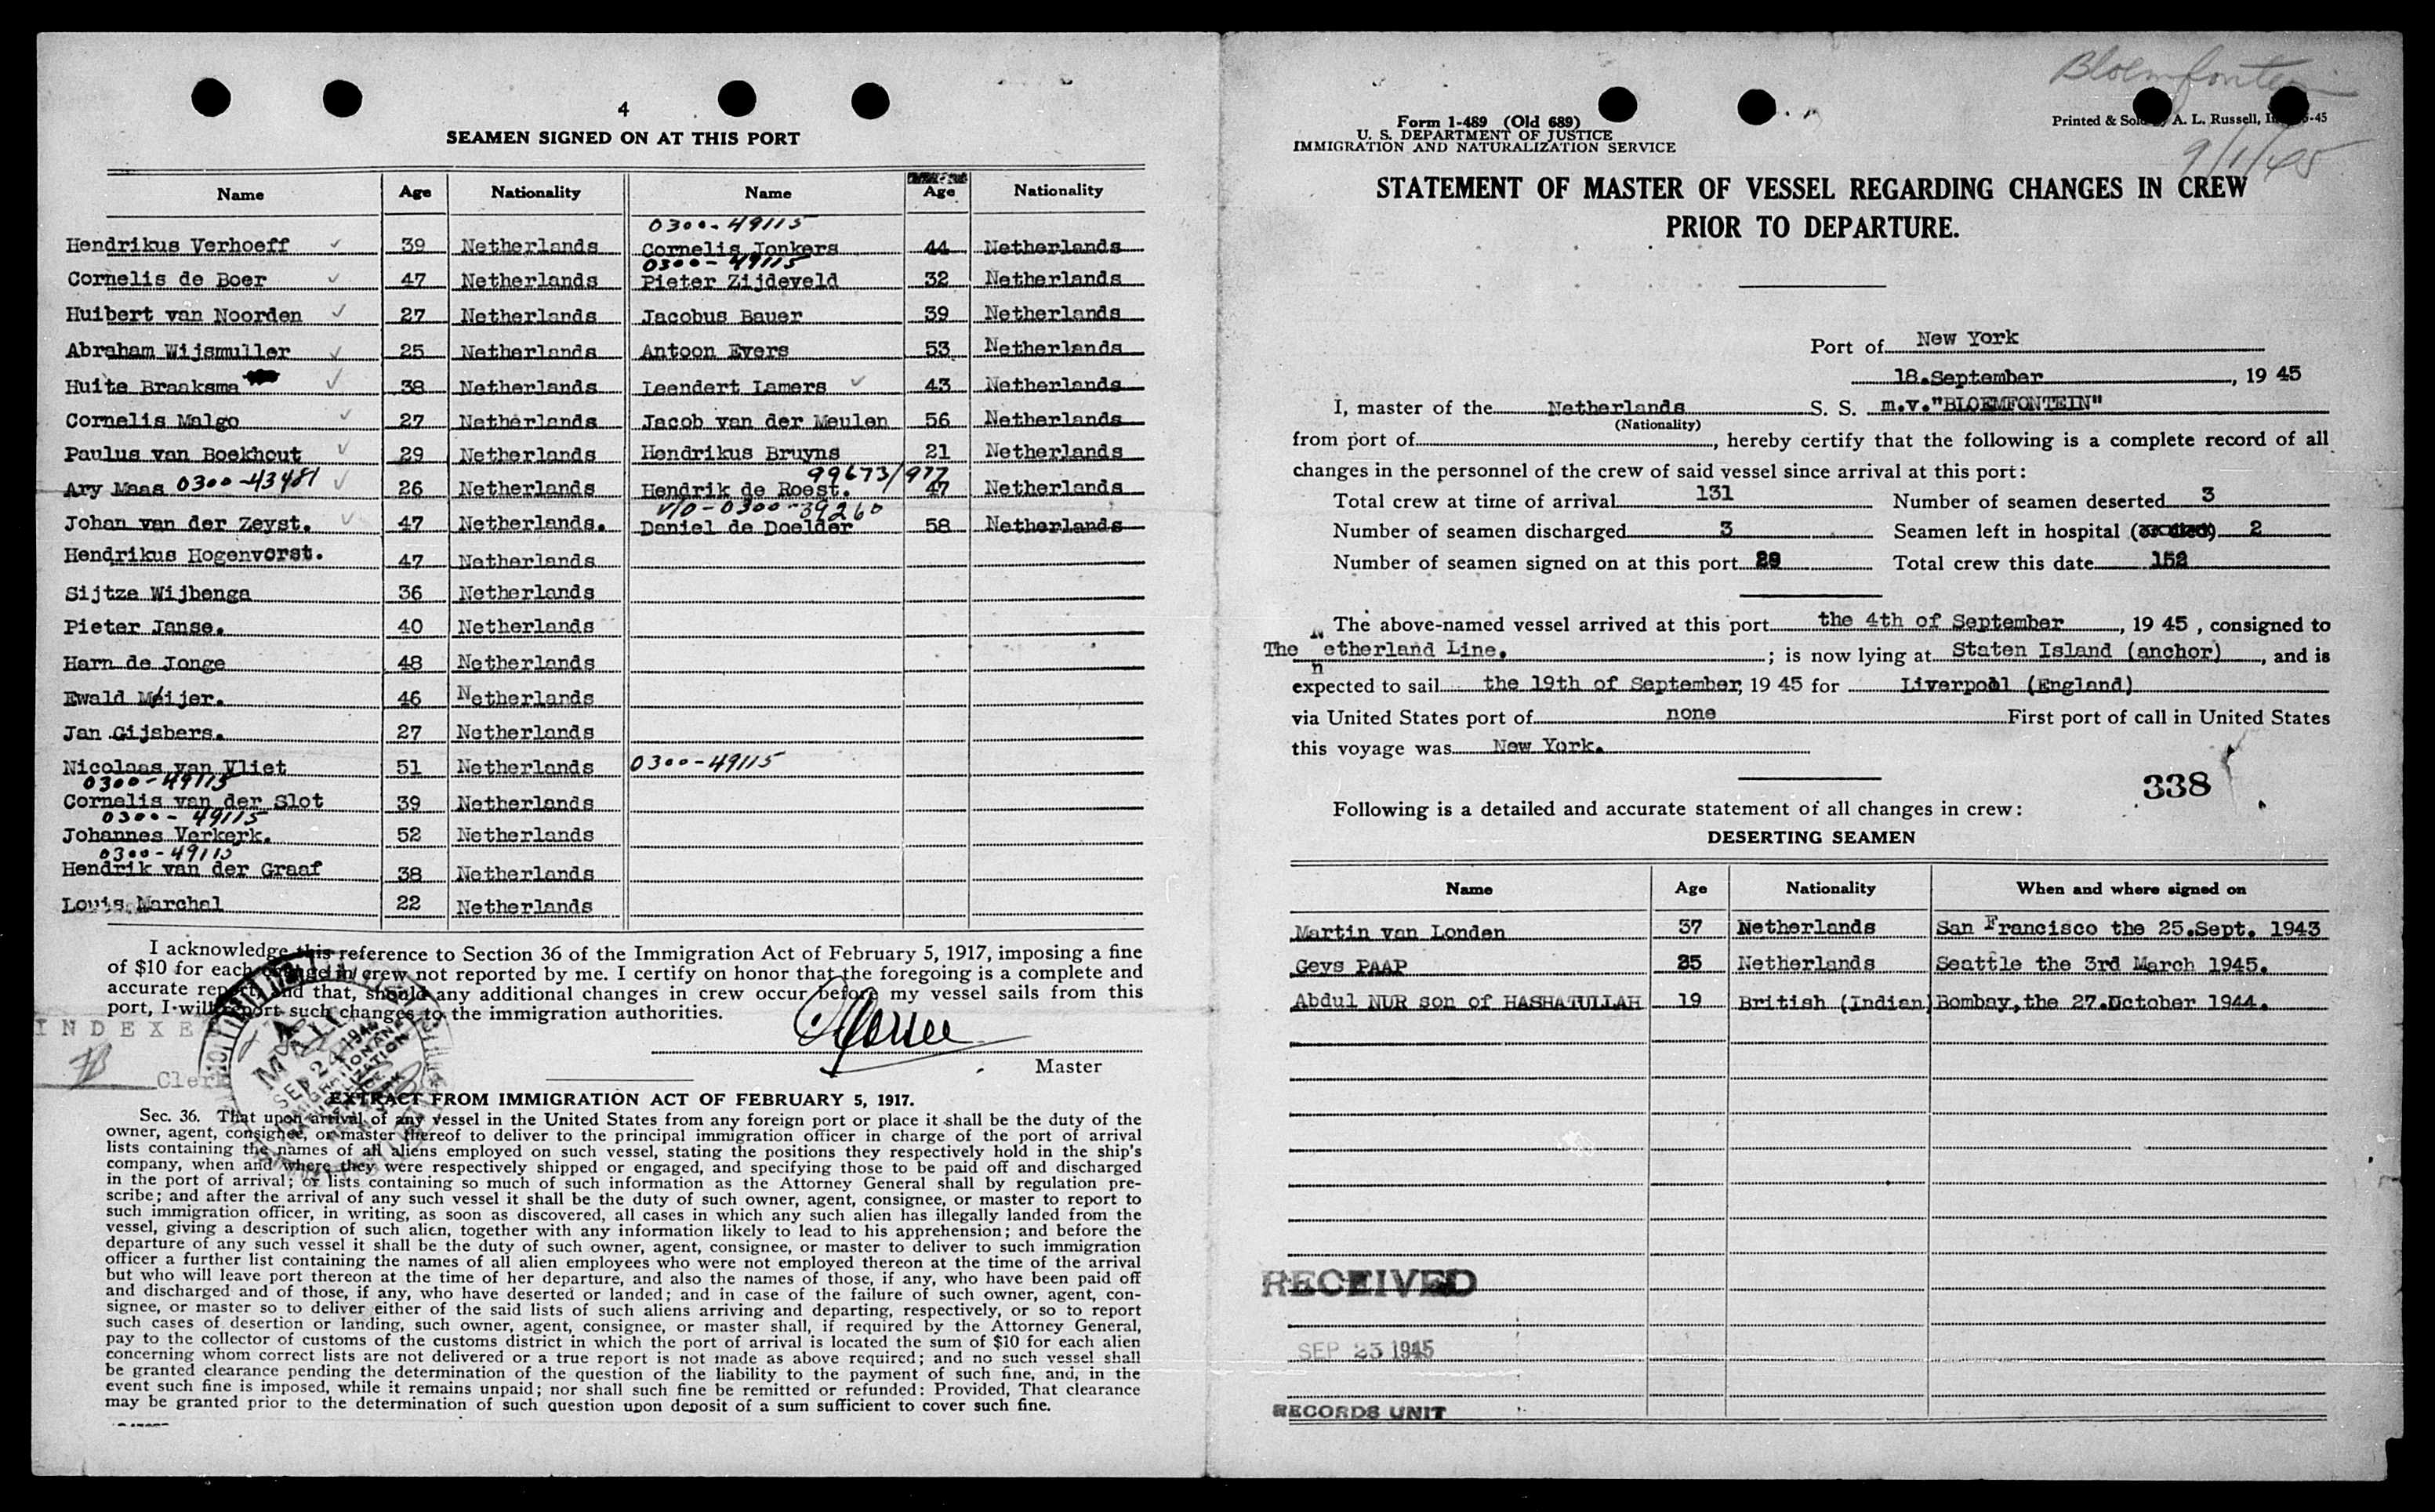 4
SEAMEN SIGNED ON AT THIS PORT
Name Age Nationality Name Age Nationality
0300-49115
Hendrikus Verhoeff 39 Netherlands Cornelis Jonkers 44 Netherlands
0300-49115
Cornelis de Boer 47 Netherlands Pieter Zijdeveld 32 Netherlands
Huibert van Noorden 27 Netherlands Jacobus Bauer 39 Netherlands
Abraham Wijsmuller 25 Netherlands Antoon Evers 53 Netherlands
Huite Braaksma 38 Netherlands Leendert Lamers 43 Netherlands
Cornelis Malgo 27 Netherlands Jacob van der Meulen 56 Netherlands
Paulus van Boekhout 29 Netherlands Hendrikus Bruyns 21 Netherlands
99673/977
Ary Maas 0300-43481 26 Netherlands Hendrik de Roest. 47 Netherlands
V/O-0300-39260
Johan van der Zeyst. 47 Netherlands. Daniel de Doelder 58 Netherlands
Hendrikus Hogenvorst. 47 Netherlands
Sijtze Wijbenga 36 Netherlands
Pieter Janse. 40 Netherlands
Harn de Jonge 48 Netherlands
Ewald Meijer. 46 Netherlands
Jan Gijsbers. 27 Netherlands
Nicolaas van Vliet 51 Netherlands 0300-49115
0300-49115
Cornelis van der Slot 39 Netherlands
0300-49115
Johannes Verkerk. 52 Netherlands
0300-49115
Hendrik van der Graaf 38 Netherlands
Louis Marchal 22 Netherlands
I acknowledge this reference to Section 36 of the Immigration Act of February 5, 1917, imposing a fine
of $10 for each change in crew not reported by me. I certify on honor that the foregoing is a complete and
accurate report, and that, should any additional changes in crew occur before my vessel sails from this
port, I will report such changes to the immigration authorities.
INDEXE
Clerk
MAIL
SEP 24 1945
IMMIGRATION AND
NATURALIZATION
NEW YORK
Master
EXTRACT FROM IMMIGRATION ACT OF FEBRUARY 5, 1917.
Sec. 36. That upon arrival of any vessel in the United States from any foreign port or place it shall be the duty of the
owner, agent, consignee, or master thereof to deliver to the principal immigration officer in charge of the port of arrival
lists containing the names of all aliens employed on such vessel, stating the positions they respectively hold in the ship's
company, when and where they were respectively shipped or engaged, and specifying those to be paid off and discharged
in the port of arrival; or lists containing so much of such information as the Attorney General shall by regulation pre-
scribe; and after the arrival of any such vessel it shall be the duty of such owner, agent, consignee, or master to report to
such immigration officer, in writing, as soon as discovered, all cases in which any such alien has illegally landed from the
vessel, giving a description of such alien, together with any information likely to lead to his apprehension; and before the
departure of any such vessel it shall be the duty of such owner, agent, consignee, or master to deliver to such immigration
officer a further list containing the names of all alien employees who were not employed thereon at the time of the arrival
but who will leave port thereon at the time of her departure, and also the names of those, if any, who have been paid off
and discharged and of those, if any, who have deserted or landed; and in case of the failure of such owner, agent, con-
signee, or master so to deliver either of the said lists of such aliens arriving and departing, respectively, or so to report
such cases of desertion or landing, such owner, agent, consignee, or master shall, if required by the Attorney General,
pay to the collector of customs of the customs district in which the port of arrival is located the sum of $10 for each alien
concerning whom correct lists are not delivered or a true report is not made as above required; and no such vessel shall
be granted clearance pending the determination of the question of the liability to the payment of such fine, and, in the
event such fine is imposed, while it remains unpaid; nor shall such fine be remitted or refunded: Provided, That clearance
may be granted prior to the determination of such question upon deposit of a sum sufficient to cover such fine.
Bloemfontein
9/1/45
Form 1-489 (Old 689)
U. S. DEPARTMENT OF JUSTICE
IMMIGRATION AND NATURALIZATION SERVICE
Printed & Sold by A. L. Russell, In -45
STATEMENT OF MASTER OF VESSEL REGARDING CHANGES IN CREW
PRIOR TO DEPARTURE.
Port of New York
18.September, 19 45
I, master of the Netherlands S. S. m.v."BLOEMFONTEIN"
(Nationality)
from port of, hereby certify that the following is a complete record of all
changes in the personnel of the crew of said vessel since arrival at this port:
Total crew at time of arrival 131 Number of seamen deserted 3
Number of seamen discharged 3 Seamen left in hospital (or died) 2
Number of seamen signed on at this port 29 Total crew this date 152
The above-named vessel arrived at this port the 4th of September, 19 45, consigned to
The Netherland Line. ; is now lying at Staten Island (anchor), and is
expected to sail the 19th of September, 19 45 for Liverpool (England)
via United States port of none First port of call in United States
this voyage was New York.
338
Following is a detailed and accurate statement of all changes in crew:
DESERTING SEAMEN
Name Age Nationality When and where signed on
Martin van Londen 37 Netherlands San Francisco the 25.Sept. 1943
Geys PAAP 25 Netherlands Seattle the 3rd March 1945.
Abdul NUR son of HASHATULLAH 19 British (Indian) Bombay, the 27.October 1944.
RECEIVED
SEP 23 1945
RECORDS UNIT